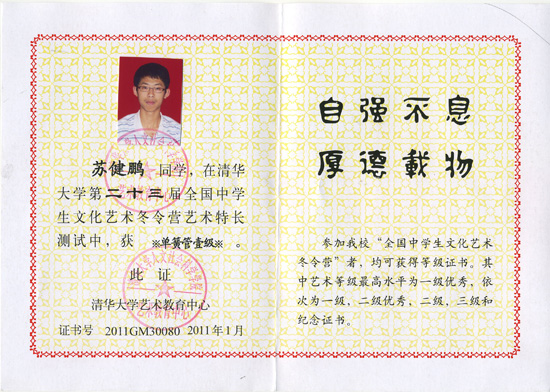 苏健鹏 同学，在清华
大学第二十三届全国中学
生文化艺术冬令营艺术特长
测试中，获 ※单簧管壹级※ 。
此 证
清华大学艺术教育中心
证书号 2011GM30080 2011年1月
自强不息
厚德載物
参加我校“全国中学生文化艺术
冬令营”者，均可获得等级证书。其
中艺术等级最高水平为一级优秀，依
次为一级、二级优秀、二级、三级和
纪念证书。